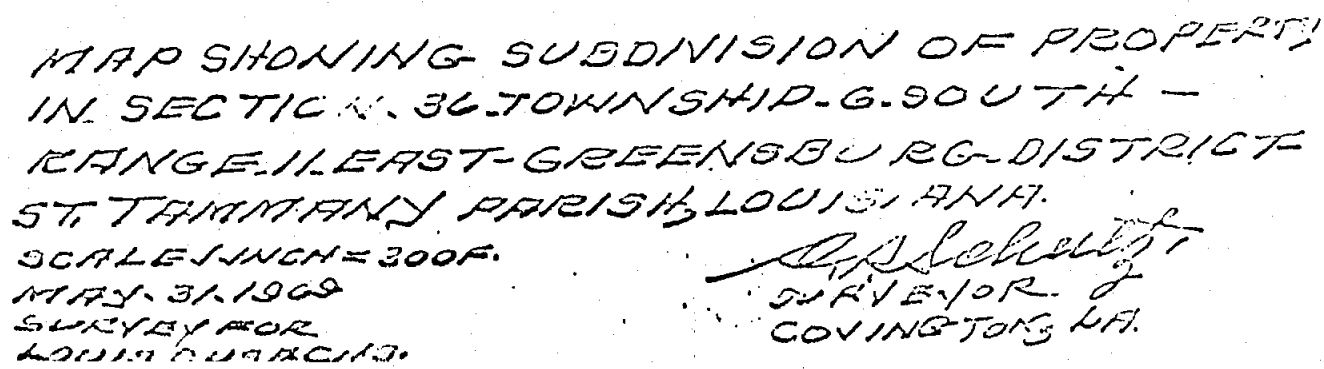 MAP SHOWING SUBDIVISION OF PROPERTY
IN SECTION. 36-TOWNSHIP-6-SOUTH-
RANGE-11-EAST-GREENSBURG-DISTRICT
ST. TAMMANY PARISH, LOUISIANA.
SCALE 1 INCH = 300 F.
MAY-31-1969
SURVEY FOR
LOUIS
Schultz
SURVEYOR.
COVINGTON, LA.